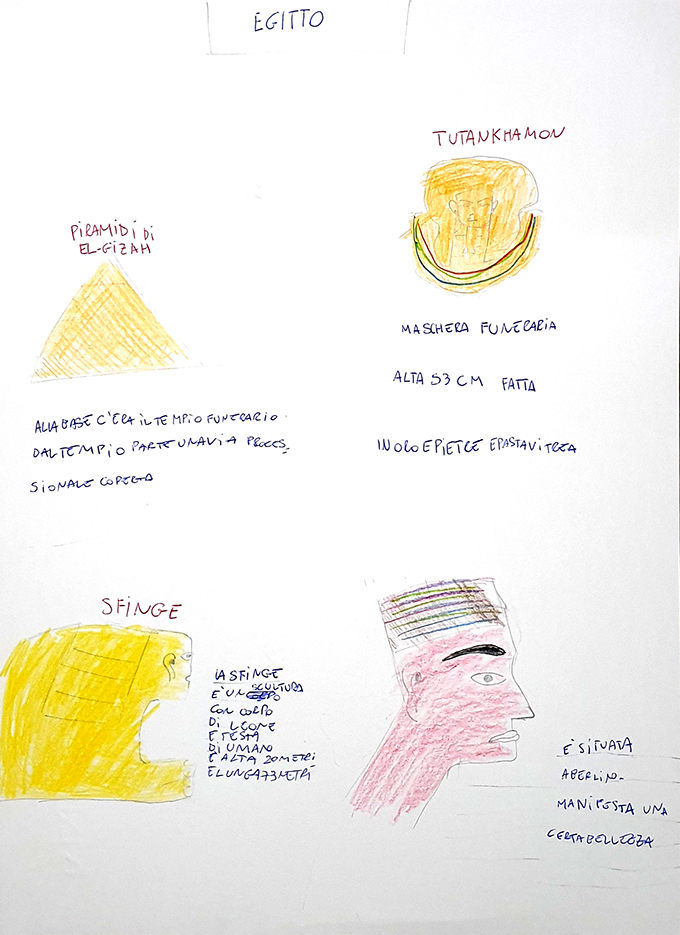 EGITTO
TUTANKHAMON
MASCHERA FUNERARIA
ALTA 53 CM FATTA
IN ORO E PIETRE E PASTA VITREA
PIRAMIDI DI
EL-GIZAH
ALLA BASE C'ERA IL TEMPIO FUNERARIO.
DAL TEMPIO PARTE UNA VIA PROCES-
SIONALE COPERTA
SFINGE
LA SFINGE
E' UN SCULTURA
CON CORPO
DI LEONE
E TESTA
DI UMANO
E ALTA 20 METRI
E LUNGA 73 METRI
E' SITUATA
A BERLINO.
MANIFESTA UNA
CERTA BELLEZZA